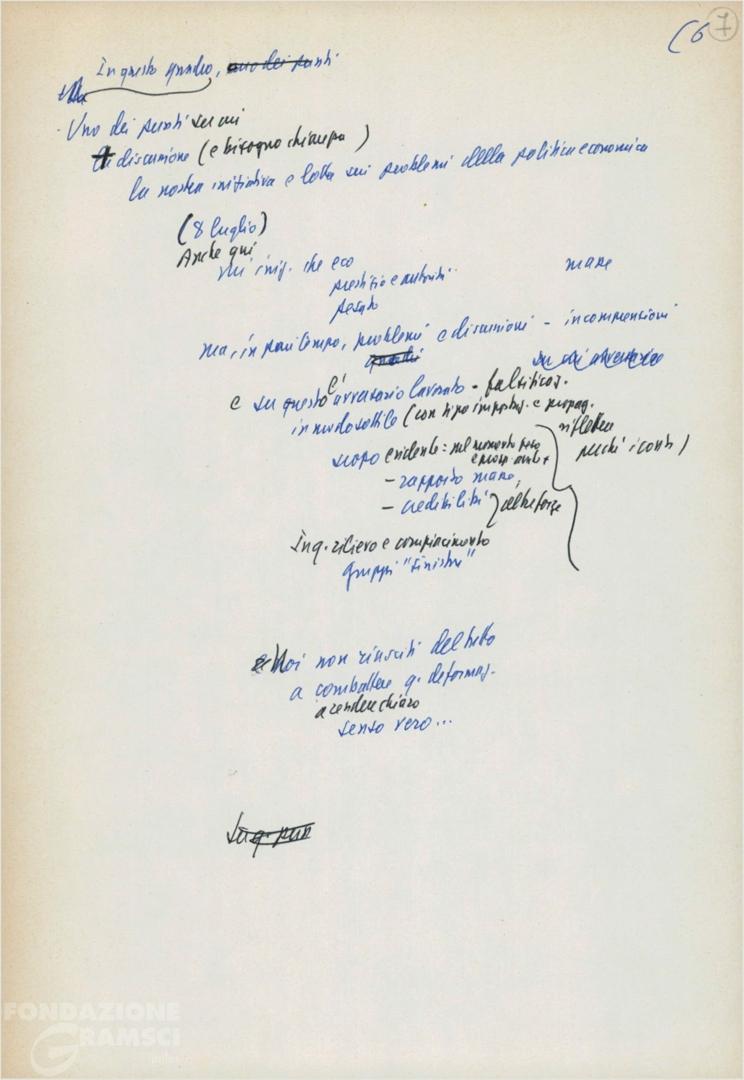 (6 7
In questo quadro, uno dei punti
Uno dei punti su cui
discussione (e bisogno chiarezza)
la nostra iniziativa e lotta sui problemi della politica economica
(8 luglio)
Anche qui
che eco
prestigio e autorità
pesato
ma, in pari tempo, problemi e discussioni - incomprensioni
su cui avversario
e su questo è avversario lavorato - falsificaz.
in modo sottile (con tipo impostaz. e propag.
riflettere
perché i conti)
scopo evidente: nel momento
- rapporto masse,
- credibilità
altre forze
In q. rilievo e compiacimento
gruppi "sinistri"
Noi non riusciti del tutto
a combattere q. deformaz.
a rendere chiaro
senso vero...
Su q. punto
FONDAZIONE
GRAMSCI